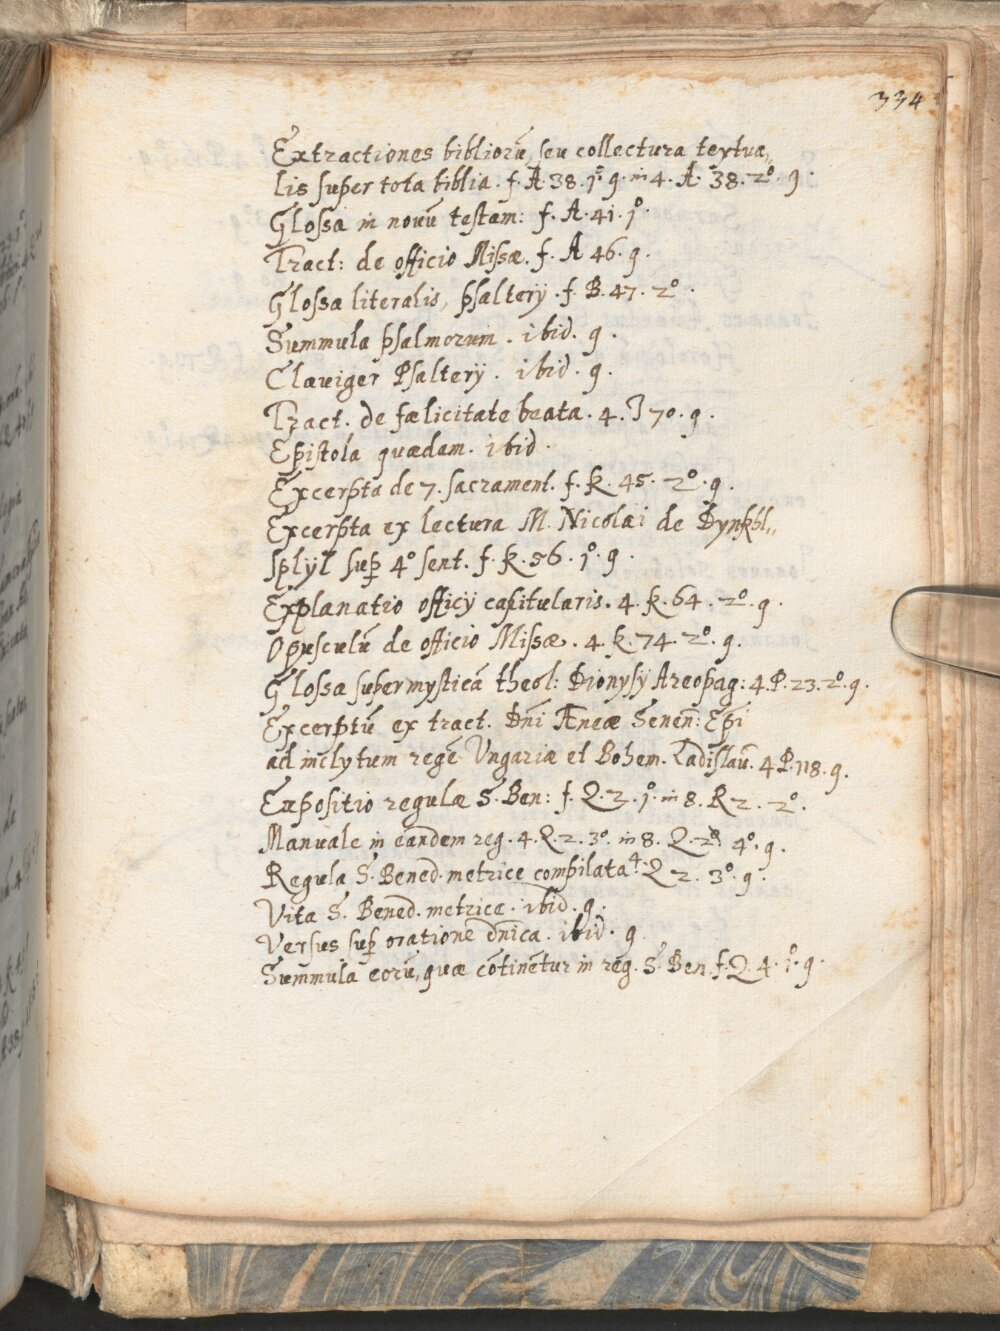 334
Extractiones bibliorū, seu collectura textua„
lis super tota biblia. f. A 38. 1º. g. in 4. A. 38. 2º. g.
Glossa in novū testam: f. A. 41. 1º.
Tract: de officio Missæ. f. A 46. g.
Glossa literalis, psalterÿ. f. B. 47. 2º.
Summula psalmorum. ibid. g.
Claviger Psalterÿ. ibid. g.
Tract. de fælicitate beata. 4. I 70. g.
Epistola quædam. ibid.
Excerpta de 7. sacrament. f. K. 45. 2º. g.
Excerpta ex lectura M. Nicolai de Dynkbl„
splÿl sup̱ 4º sent. f. K. 56. 1º. g.
Explanatio officÿ capitularis. 4. K. 64. 2º. g.
Opusculū de officio Missæ. 4. K. 74. 2º. g.
Glossa super mysticā theol: Dionysÿ Areopag: 4. P. 23. 2º. g.
Excerptū ex tract. Dn̄i Æneæ Senen: Ep̄i
ad inclytum regē Vngariæ et Bohem. Ladislaū. 4 P. 118. g.
Expositio regulæ S. Ben: f. Q. 2. 1º. in 8. R 2. 2º.
Manuale in eandem reg. 4. Q. 2. 3º. in 8. Q. 2º. 4º. g.
Regula S. Bened. metrice compilata 4. Q 2. 3º. g.
Vita S. Bened. metrice. ibid. g.
Versus sup̱ orationē dn̄ica. ibid. g
Summula eorū, quæ cōtinētur in reg. S. Ben. f. Q. 4. 1º. g.